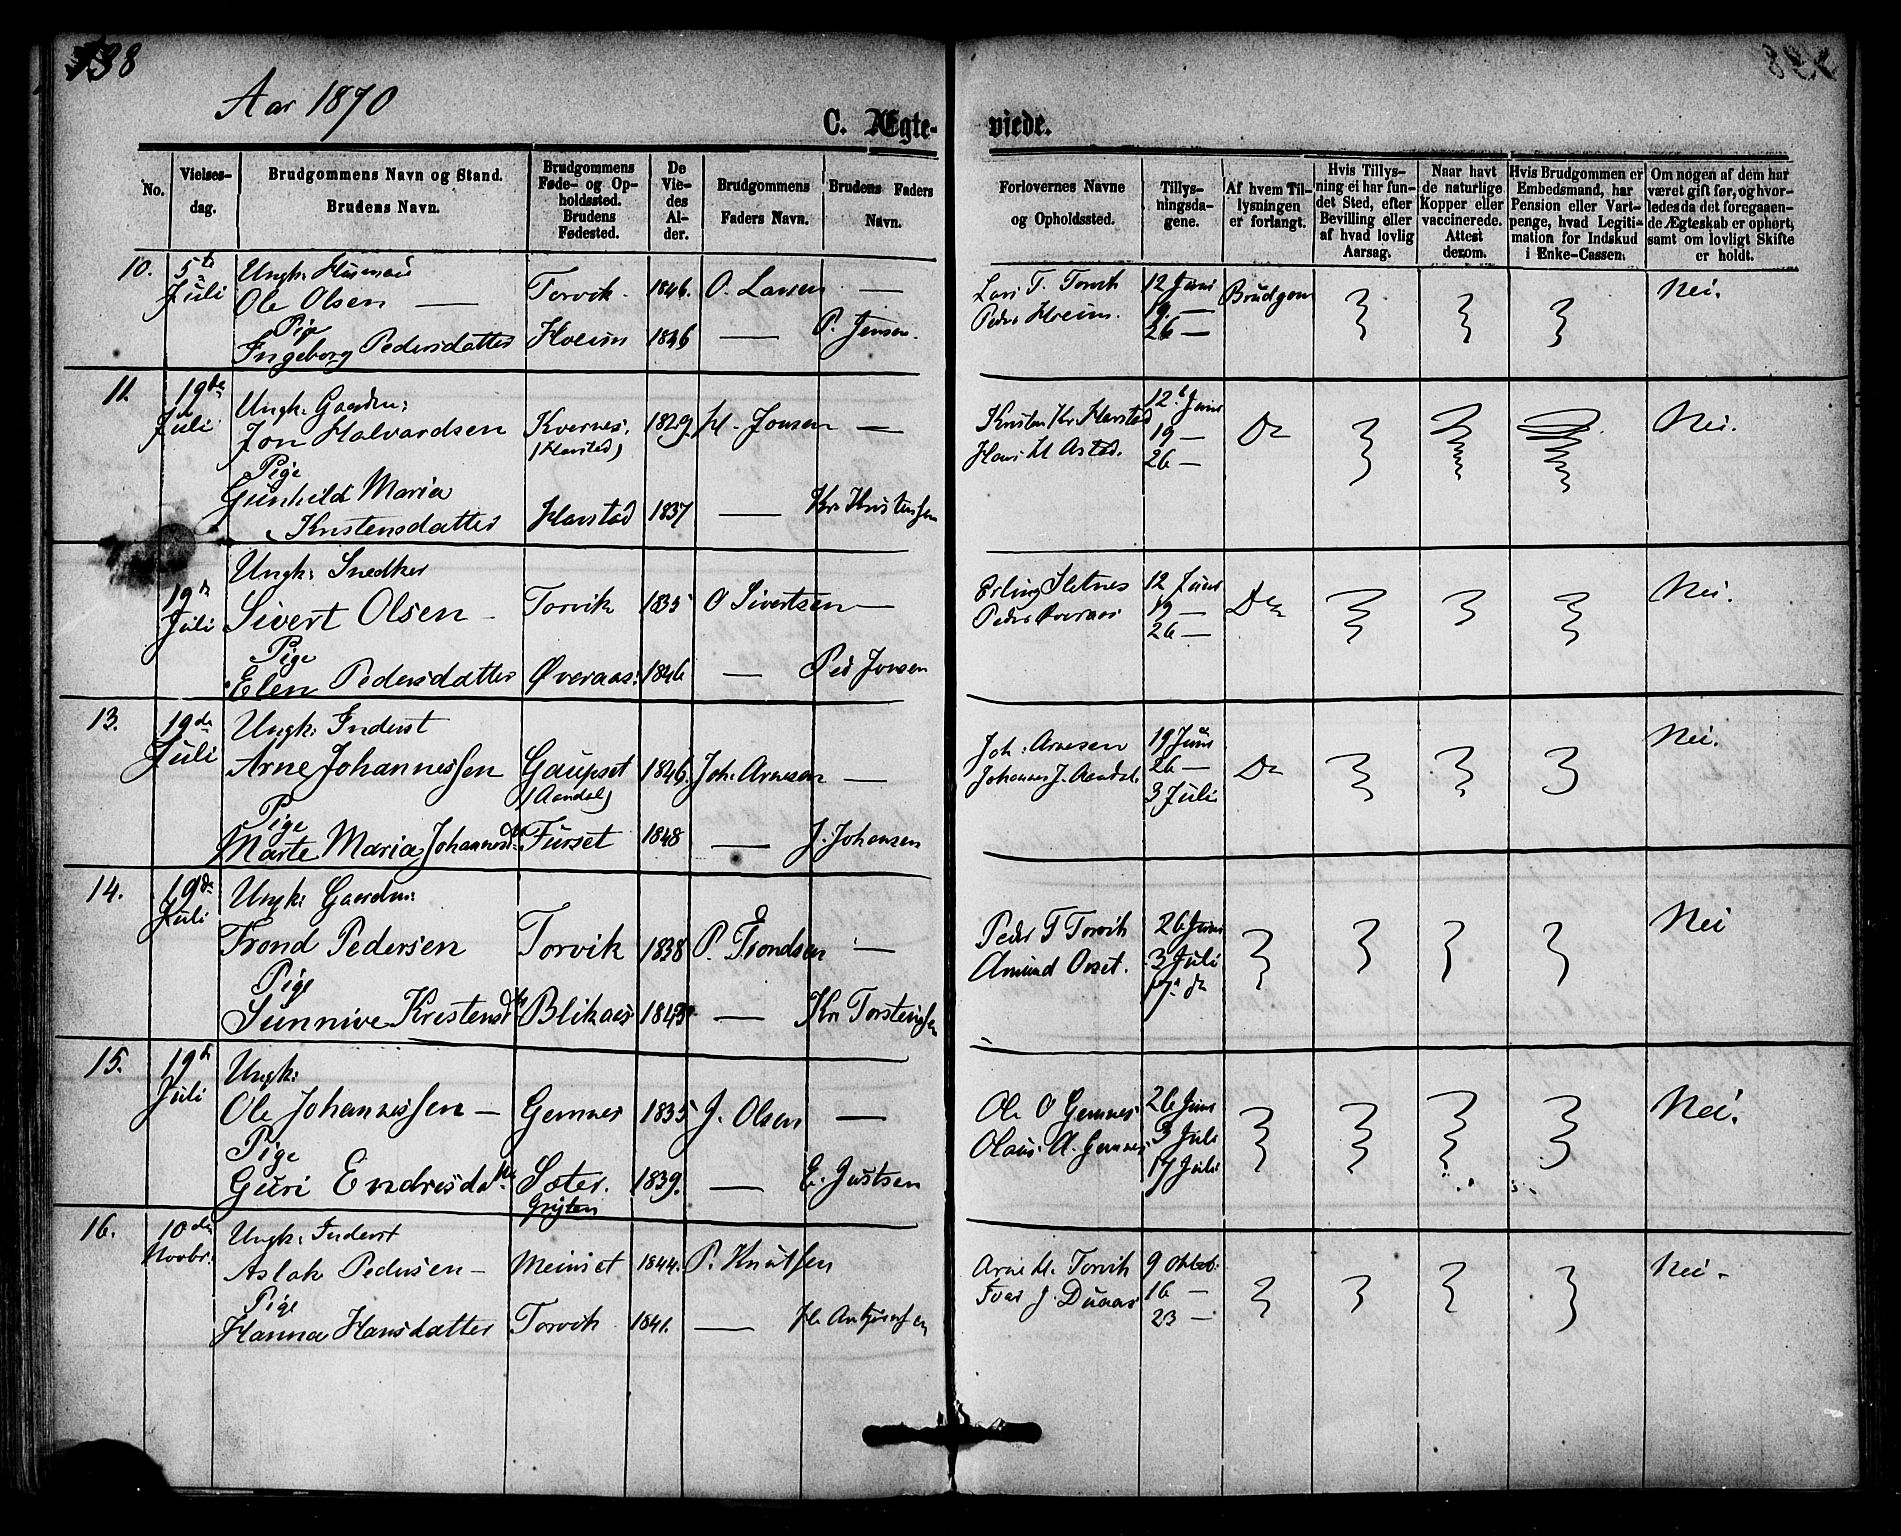 138
Aar 1870
C. Ægte-
viede.
No.
Vielses-
dag.
Brudgommens Navn og Stand.
Brudens Navn.
Brudgommens
Føde- og Op-
holdssted.
Brudens
Fødested.
De
Vie-
des
Al-
der.
Brudgommens
Faders Navn.
Brudens Faders
Navn.
Forlovernes Navne
og Opholdssted.
Tillys-
ningsda-
gene.
Af hvem Til-
lysningen
er forlangt.
Hvis Tillys-
ning ei har fun-
det Sted, efter
Bevilling eller
af hvad lovlig
Aarsag.
Naar havt
de naturlige
Kopper eller
vaccinerede.
Attest
derom.
Hvis Brudgommen er
Embedsmand, har
Pension eller Vart-
penge, hvad Legiti-
mation for Indskud
i Enke-Cassen.
Om nogen af dem har
været gift før, og hvor-
ledes da det foregaaen-
de Ægteskab er ophørt,
samt om lovligt Skifte
er holdt.
10. 5te Juli
Ungk: Husmand
Ole Olsen — Torvik. 1846. O. Larsen —
Pige
Ingeborg Pedersdatter Hoeim 1846 — P. Jensen.
Lars T. Torvik 12 Juni Brudgom Nei.
Peder Hoeim. 19. —
26 —
11. 19de Juli
Ungk: Gaardm:
Jon Halvardsen Kvernes. 1829 H. Jonsen —
(Harstad)
Pige
Gunhild Maria
Kristensdatter Harstad 1837 — Kr. Kristensen
Kristen Kr Harstad 12te Juni Do Nei.
Hans H Astad. 19 —
26 —
19de Juli
Ungk: Snedker
Sivert Olsen — Torvik 1835 O Sivertsen —
Pige
Elen Pedersdatter Øveraas: 1846 — Ped Jonsen
Erling Sletnes 12 Juni Do Nei.
Peder Øveraas 19 —
26 —
13. 19de Juli
Ungk: Inderst
Arne Johannessen Gaupset 1846. Joh: Arnesen —
(Aandal)
Pige
Marte Maria Johannesdt. Furset 1848 — J. Johansen
Joh: Arnesen 19 Juni Do Nei.
Johannes J. Aandal. 26 —
3 Juli
14. 19de Juli
Ungk: Gaardm:
Trond Pedersen Torvik 1838 P. Trondsen —
Pige
Sunnive Kristensdt Blikaas 1843 — Kr Torstensen
Peder T Torvik 26 Juni Nei
Amund Orset. 3 Juli
17. do
15. 19de Juli
Ungk:
Ole Johannessen — Gemnes 1835 J. Olsen —
Pige
Guri Endresdatter Sæter. 1839. — E. Justsen
Ole O Gemnes 26 Juni Nei.
Olaus A. Gemnes 3 Juli
17 Juli
16. 10de Novbr.
Grytten
Ungk: Inderst
Aslak Pedersen — Meiniset 1844. P. Knutsen
Pige
Hanna Hansdatter Torvik 1841. —
Arne H. Torvik 9 Oktob: Nei —
Ivar J. 16 —
23 —